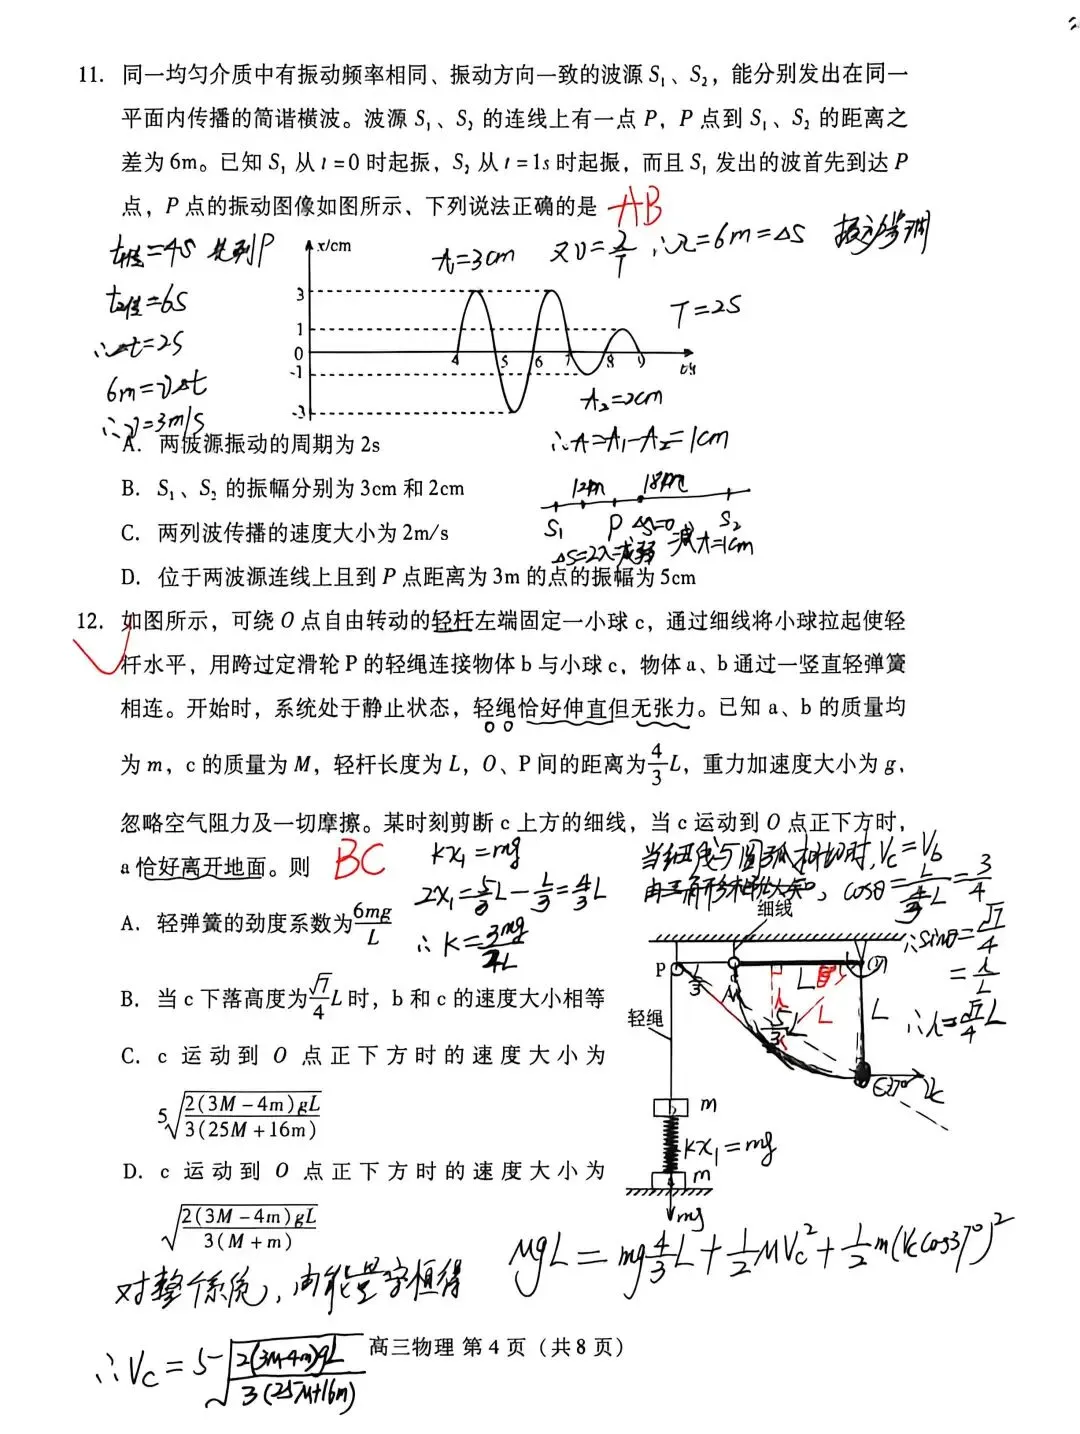 11. 同一均匀介质中有振动频率相同、振动方向一致的波源 S₁、S₂，能分别发出在同一
平面内传播的简谐横波。波源 S₁、S₂ 的连线上有一点 P，P 点到 S₁、S₂ 的距离之
差为 6m。已知 S₁ 从 t=0 时起振，S₂ 从 t=1s 时起振，而且 S₁ 发出的波首先到达 P
点，P 点的振动图像如图所示、下列说法正确的是 AB
t₁传=4S
t₂传=6S
∴Δt=2S
6m=vΔt
∴v=3m/s
x/cm
3
1
0
-1
-3
4 5 6 7 8 9
t/s
A₁=3cm
又v=λ/T ∴λ=6m=ΔS
T=2S
A₂=2cm
∴A=A₁-A₂=1cm
A. 两波源振动的周期为 2s
B. S₁、S₂ 的振幅分别为 3cm 和 2cm
C. 两列波传播的速度大小为 2m/s
D. 位于两波源连线上且到 P 点距离为 3m 的点的振幅为 5cm
12m 18m
S₁ P ΔS=0 S₂
ΔS=2λ=减弱 减 A=1cm
12. 如图所示，可绕 O 点自由转动的轻杆左端固定一小球 c，通过细线将小球拉起使轻
杆水平，用跨过定滑轮 P 的轻绳连接物体 b 与小球 c，物体 a、b 通过一竖直轻弹簧
相连。开始时，系统处于静止状态，轻绳恰好伸直但无张力。已知 a、b 的质量均
为 m，c 的质量为 M，轻杆长度为 L，O、P 间的距离为4/3L，重力加速度大小为 g，
忽略空气阻力及一切摩擦。某时刻剪断 c 上方的细线，当 c 运动到 O 点正下方时，
a 恰好离开地面。则 BC
kx₁=mg
2x₁=5/3L-L/3=4/3L
∴k=3mg/2L
当细线与圆弧相切时，Vc=Vb
由三角形相似知，cosθ=L/(4/3L)=3/4
∴sinθ=√7/4
=h/L
∴h=√7/4L
A. 轻弹簧的劲度系数为6mg/L
B. 当 c 下落高度为√7/4L 时，b 和 c 的速度大小相等
C. c 运动到 O 点正下方时的速度大小为
5√(2(3M-4m)gL/3(25M+16m))
D. c 运动到 O 点正下方时的速度大小为
√(2(3M-4m)gL/3(M+m))
细线
P
L
L/3
5/3L
L
h
L
轻绳
37° Vc
m
kx₁=mg
m
mg
MgL=mg4/3L+1/2MVc²+1/2m(Vccos37°)²
对整个系统，由能量守恒得
∴Vc=5√(2(3M-4m)gL/3(25M+16m))
高三物理 第 4 页（共 8 页）